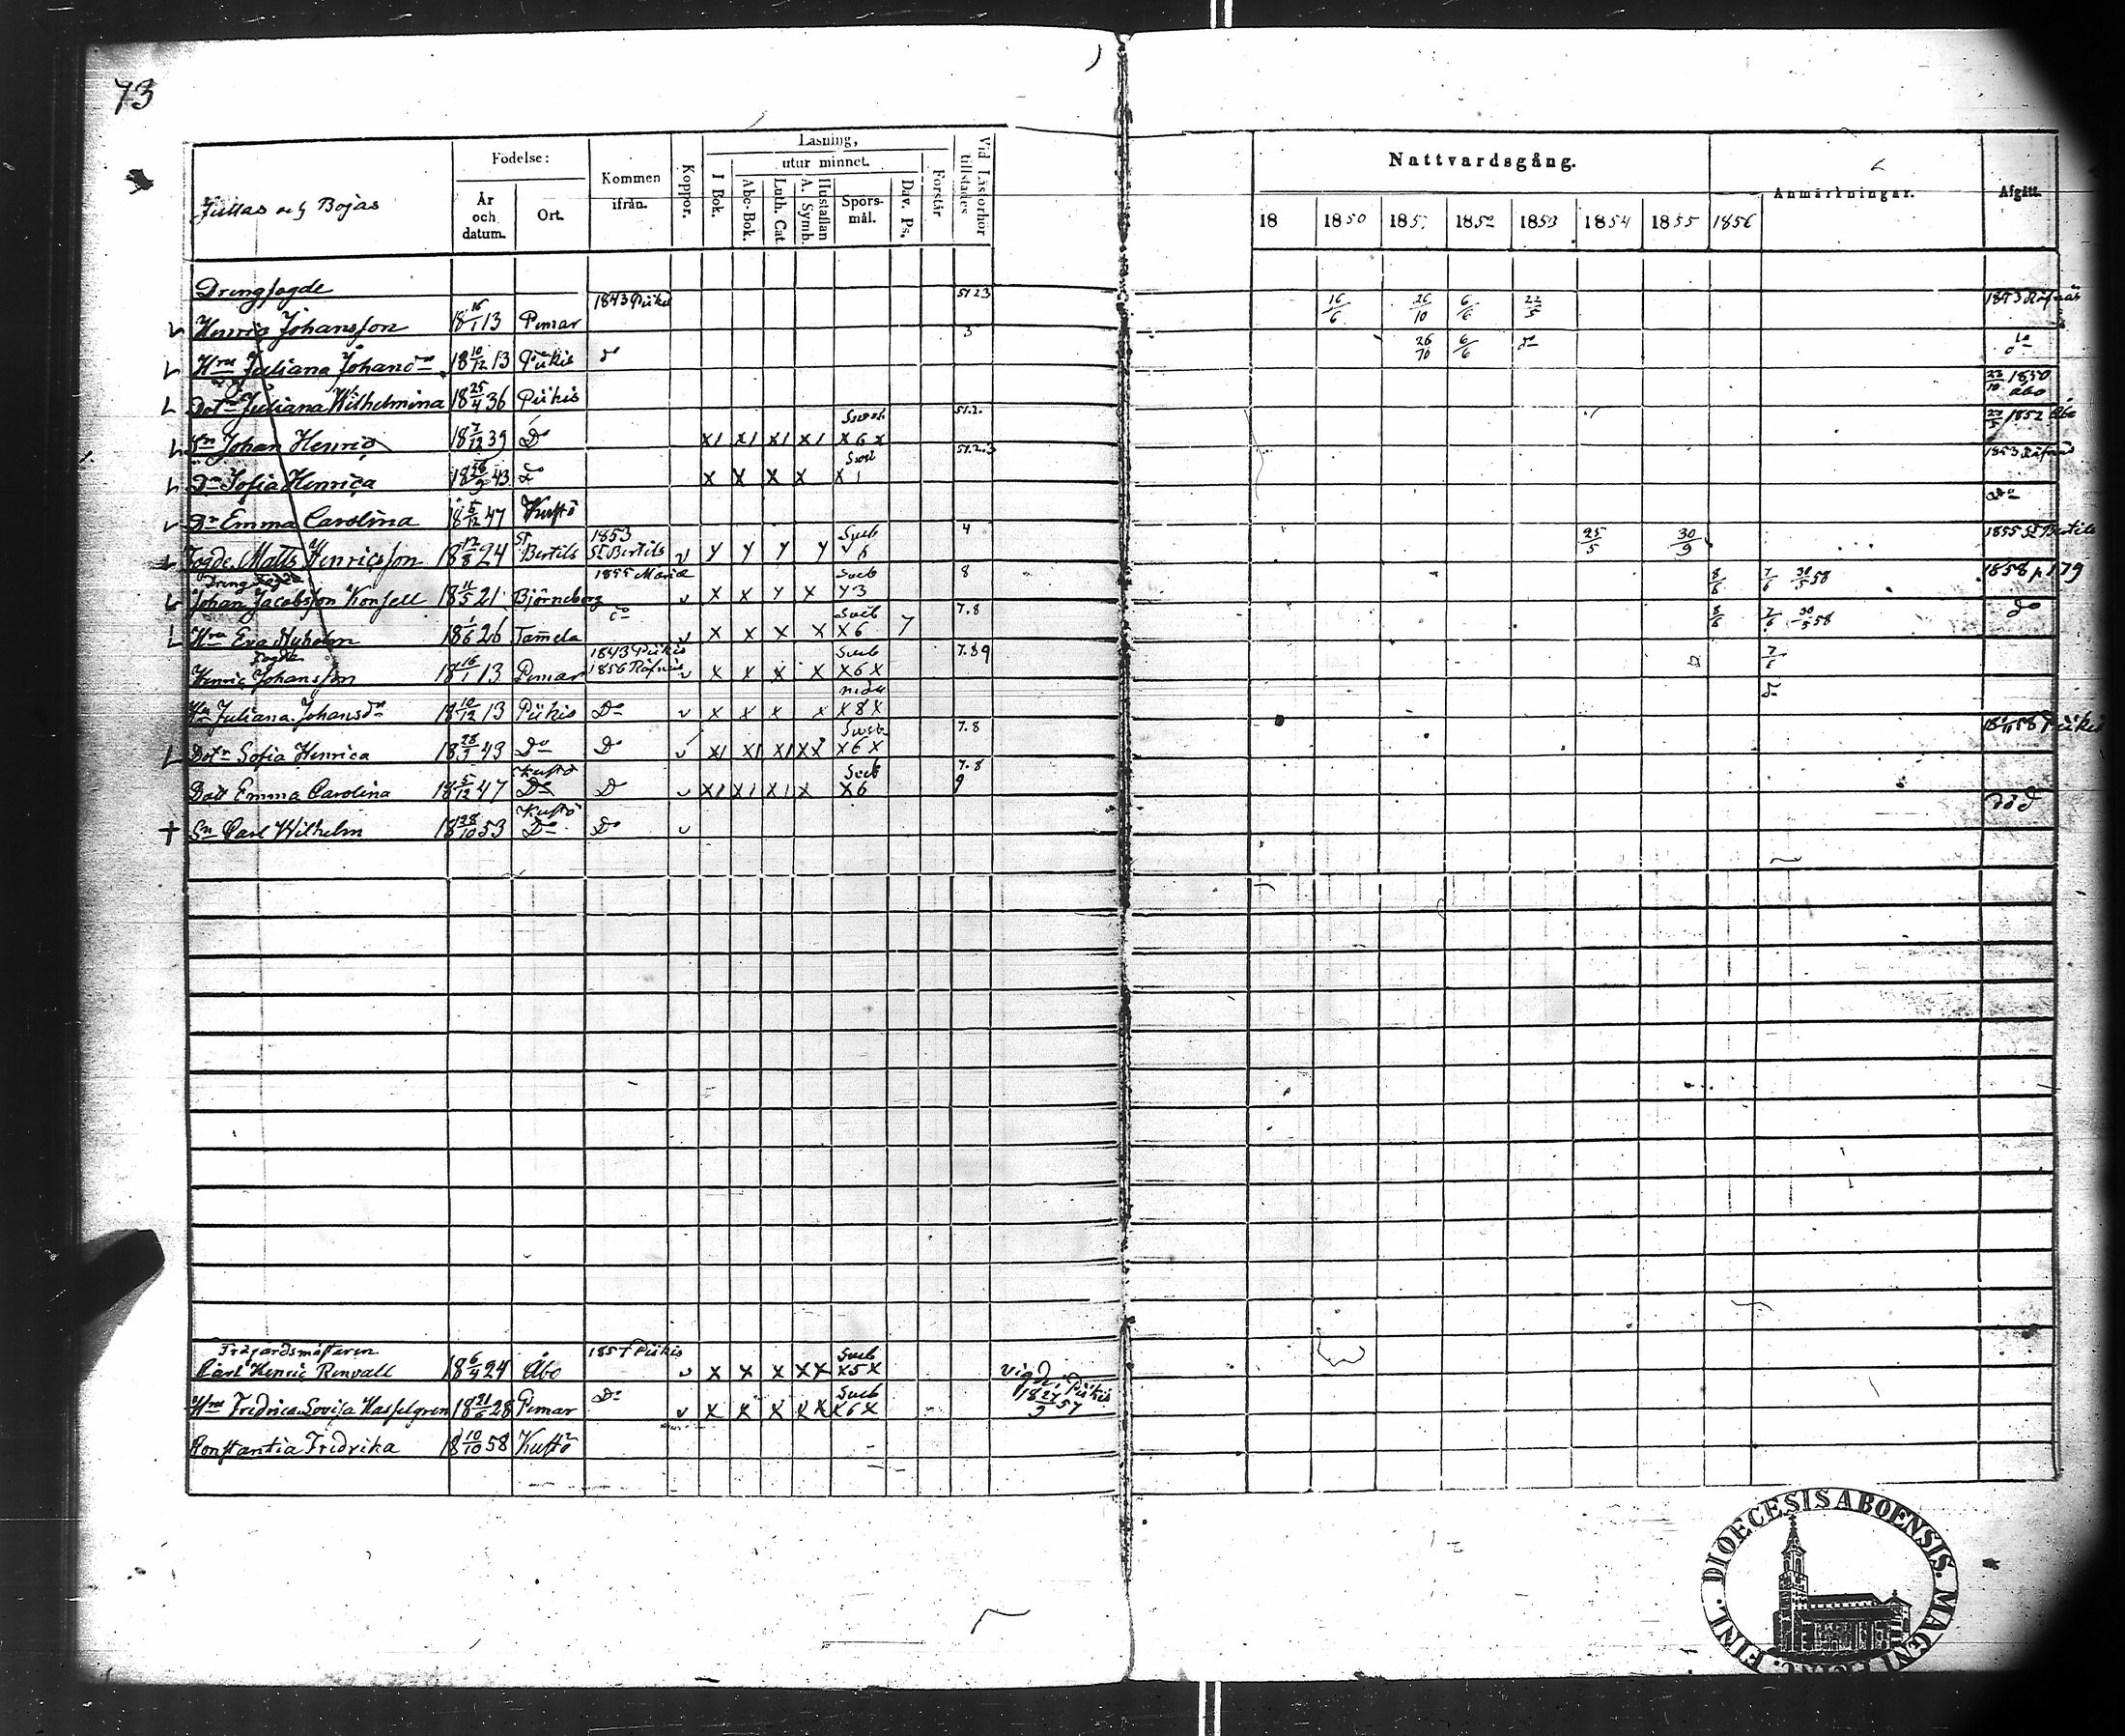 73
Jullas och Bojas
Födelse:
År och datum.
Ort.
Kommen ifrån.
Koppor.
Läsning,
I Bok.
utur minnet.
Abc-Bok.
Luth. Cat.
A. Symb.
Hustaflan
Sporsmål.
Dav. Ps.
Förstår
Vid Läsförhör tillstädes
Nattvardsgång.
18 1850 185 1852 1853 1854 1855 1856
Anmärkningar.
Afgått.
Drengfogde
Henric Johansson 18 16/1 13 Pemar 1843 Pikis 51 23 16/6 26/10 6/6 22/5 1853 Räfnäs
Hru Juliana Johansdr 18 10/12 13 Pikis do 3 26/10 6/6 do do
Dotr Juliana Wilhelmina 18 25/4 36 Pikis 22/10 1850 Åbo
Sn Johan Henric 18 7/12 39 Do x1 x1 x1 x1 x6x 51.2. 1852 Åbo
Dr Sofia Henrica 18 28/9 43 Do x x x x x1 51.2.3 1853 Räfnäs
Dr Emma Carolina 18 5/12 47 Kustö do
Fogde Matts Henricsson 18 12/8 24 St Bertils 1853 St Bertils v y y y y Sveb 4 25/5 30/9 1855 St Bertils
Dreng Fogde
Johan Jacobsson Konsell 18 11/5 21 Björneborg 1855 Maria v x x y x Sveb y3 8 8/6 7/6 30/5 58 1858 p. 179
Hru Eva Nyholm 18 1/6 26 Tamela do v x x x x Sveb x6 7 7.8 8/6 7/6 30/5 58 do
Fogde
Henric Johansson 18 16/1 13 Pemar 1843 Pikis 1856 Räfnäs v x x x x Sveb x6x 7.8 9 7/6
Hu Juliana Johansdr 18 10/12 13 Pikis Do v x x x x x8x do
Dotr Sofia Henrica 18 28/9 43 Do Do v x1 x1 x1 xx Sveb x6x 7.8 58 Pikis
Dott Emma Carolina 18 5/12 47 Kustö Do D v x1 x1 x1 x Sveb x6 7.8 9
Sn Carl Wilhelm 18 28/10 53 Kustö Do Do v död
Trägårdsmästaren
Carl Henric Renvall 18 6/4 24 Åbo 1857 Pikis v x x x xx Sveb x5x
Hru Fredrica Lovisa Hasselgren 18 21/6 28 Pemar Do v x x x xx Sveb x6x
vigd i Pikis
18 27/9 57
Konstantia Fridrika 18 10/10 58 Kustö
FINL. DIOECESIS ABOENSIS. MAGNI